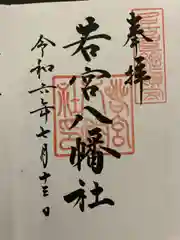 奉拝
若宮八幡社
令和六年七月十三日